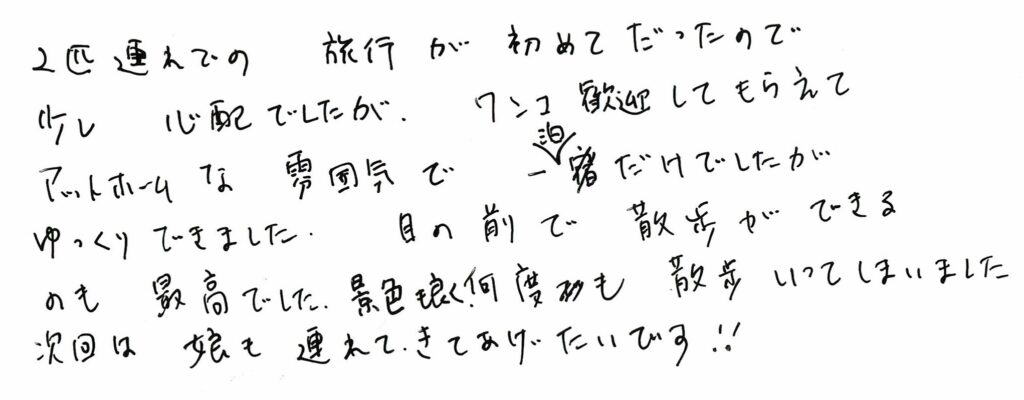 2匹連れでの 旅行が初めてだったので
少し 心配でしたが、ワンコ歓迎してもらえて
アットホームな 雰囲気で 一泊だけでしたが
ゆっくりできました。目の前で 散歩ができる
のも 最高でした。景色も良く何度も 散歩いってしまいました
次回は 娘も 連れて、きてあげたいです!!